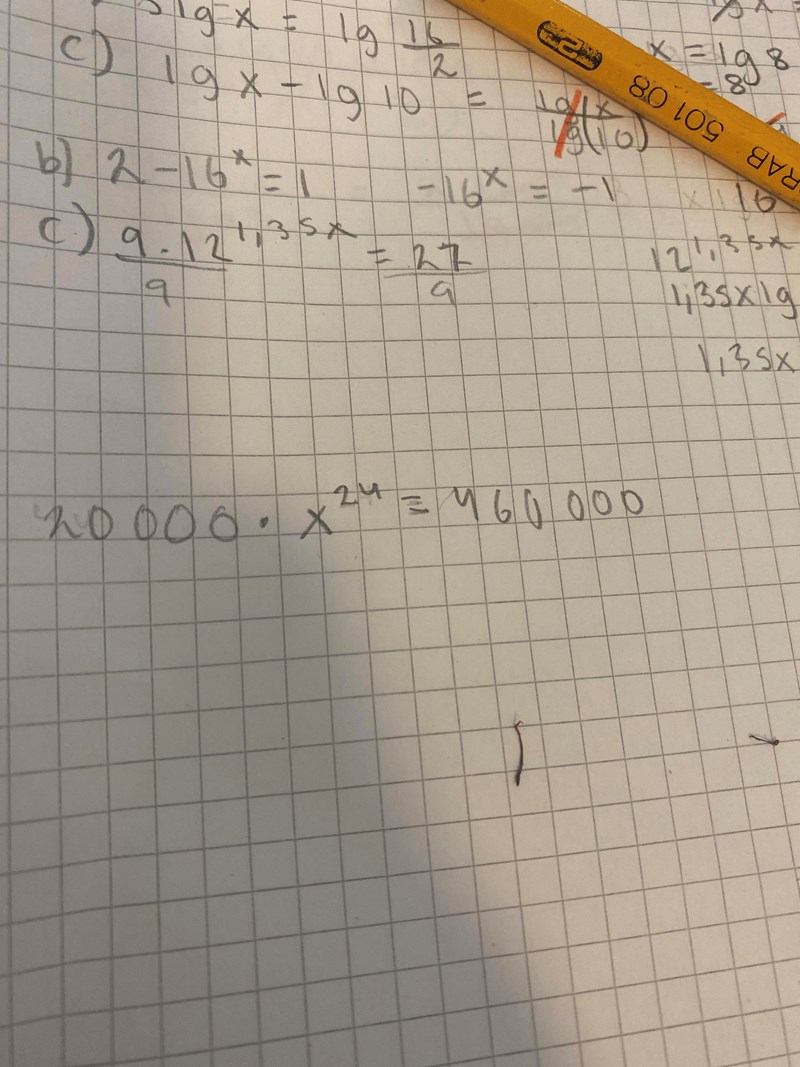 lg x = lg 16/2
x = lg 8
= 8
c) lg x - lg 10 = lg(x/lg(10)
2
501 08
RAB
b) 2 - 16^x = 1 -16^x = -1
c) 9 · 12^1,35x / 9 = 27 / 9 12^1,35x
1,35x lg
1,35x
20 000 · x^24 = 460 000